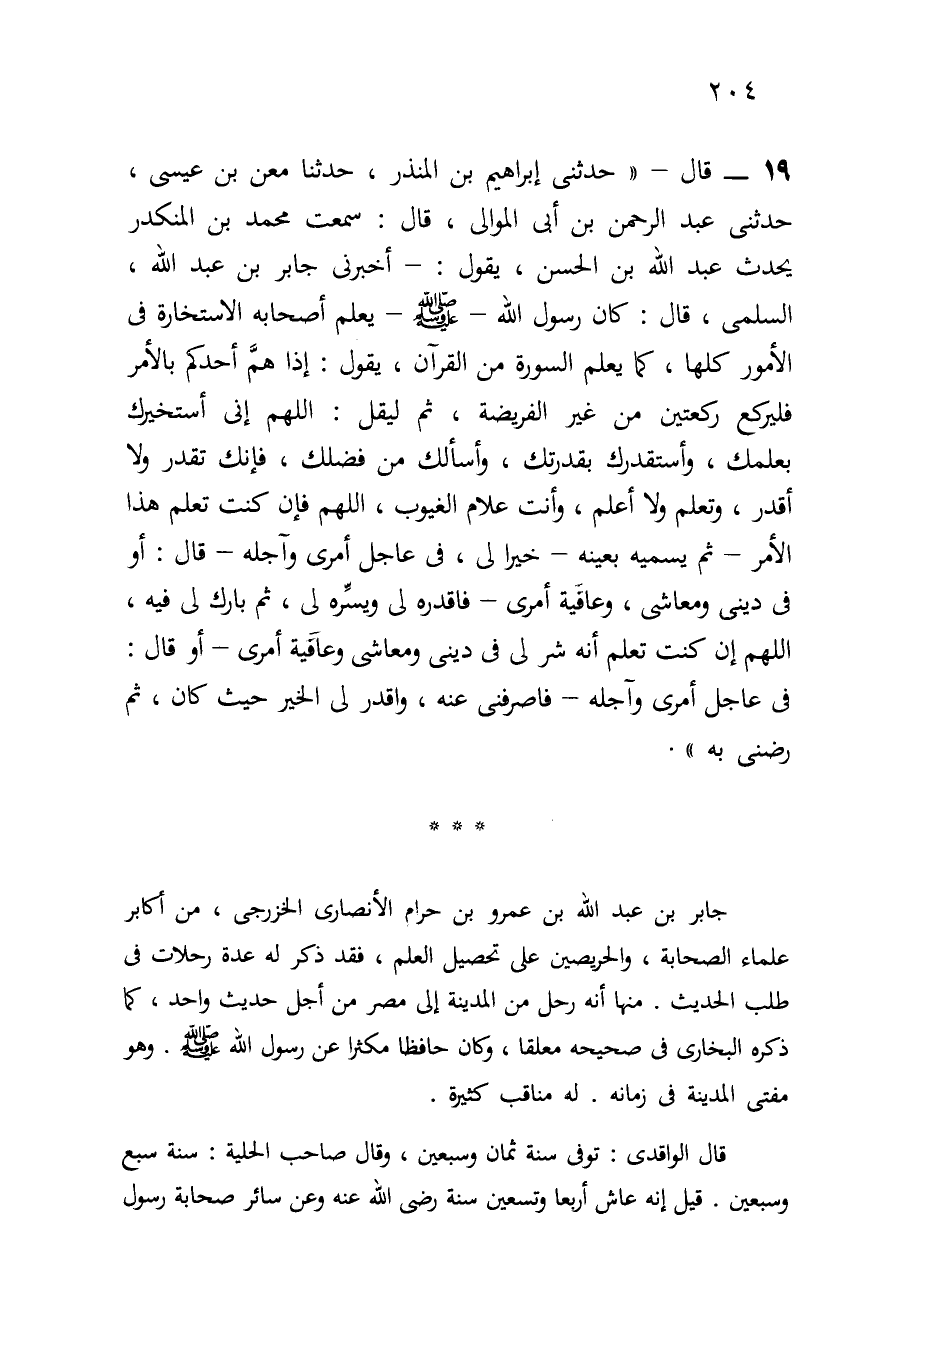 ٢٠٤
١٩ ــ قال – « حدثنى إبراهيم بن المنذر ، حدثنا معن بن عيسى ،
حدثنى عبد الرحمن بن أبى الموالى ، قال : سمعت محمد بن المنكدر
يحدث عبد الله بن الحسن ، يقول : – أخبرنى جابر بن عبد الله ،
السلمى ، قال : كان رسول الله – ﷺ – يعلم أصحابه الاستخارة فى
الأمور كلها ، كما يعلم السورة من القرآن ، يقول : إذا همَّ أحدكم بالأمر
فليركع ركعتين من غير الفريضة ، ثم ليقل : اللهم إنى أستخيرك
بعلمك ، وأستقدرك بقدرتك ، وأسألك من فضلك ، فإنك تقدر ولا
أقدر ، وتعلم ولا أعلم ، وأنت علام الغيوب ، اللهم فإن كنت تعلم هذا
الأمر – ثم يسميه بعينه – خيرا لى ، فى عاجل أمرى وآجله – قال : أو
فى دينى ومعاشى ، وعاقَبة أمرى – فاقدره لى ويسِّره لى ، ثم بارك لى فيه ،
اللهم إن كنت تعلم أنه شر لى فى دينى ومعاشى وعاقَبة أمرى – أو قال :
فى عاجل أمرى وآجله – فاصرفنى عنه ، واقدر لى الخير حيث كان ، ثم
رضنى به » ·
* * *
جابر بن عبد الله بن عمرو بن حرام الأنصارى الخزرجى ، من أكابر
علماء الصحابة ، والحريصين على تحصيل العلم ، فقد ذكر له عدة رحلات فى
طلب الحديث . منها أنه رحل من المدينة إلى مصر من أجل حديث واحد ، كما
ذكره البخارى فى صحيحه معلقا ، وكان حافظا مكثرا عن رسول الله ﷺ . وهو
مفتى المدينة فى زمانه . له مناقب كثيرة .
قال الواقدى : توفى سنة ثمان وسبعين ، وقال صاحب الحلية : سنة سبع
وسبعين . قيل إنه عاش أربعا وتسعين سنة رضى الله عنه وعن سائر صحابة رسول